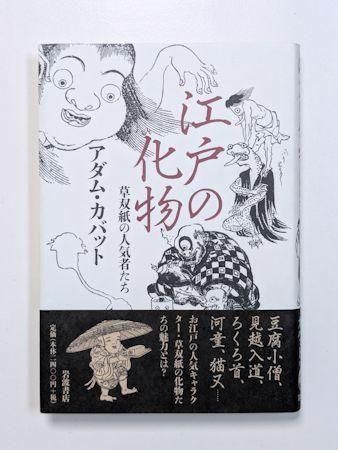 江戸の
化物
草双紙の人気者たち
アダム・カバット
豆腐小僧、
見越入道、
ろくろ首、
河童、猫又……
お江戸の人気キャラク
ター・草双紙の化物た
ちの魅力とは？
岩波書店
定価（本体二四〇〇円＋税）